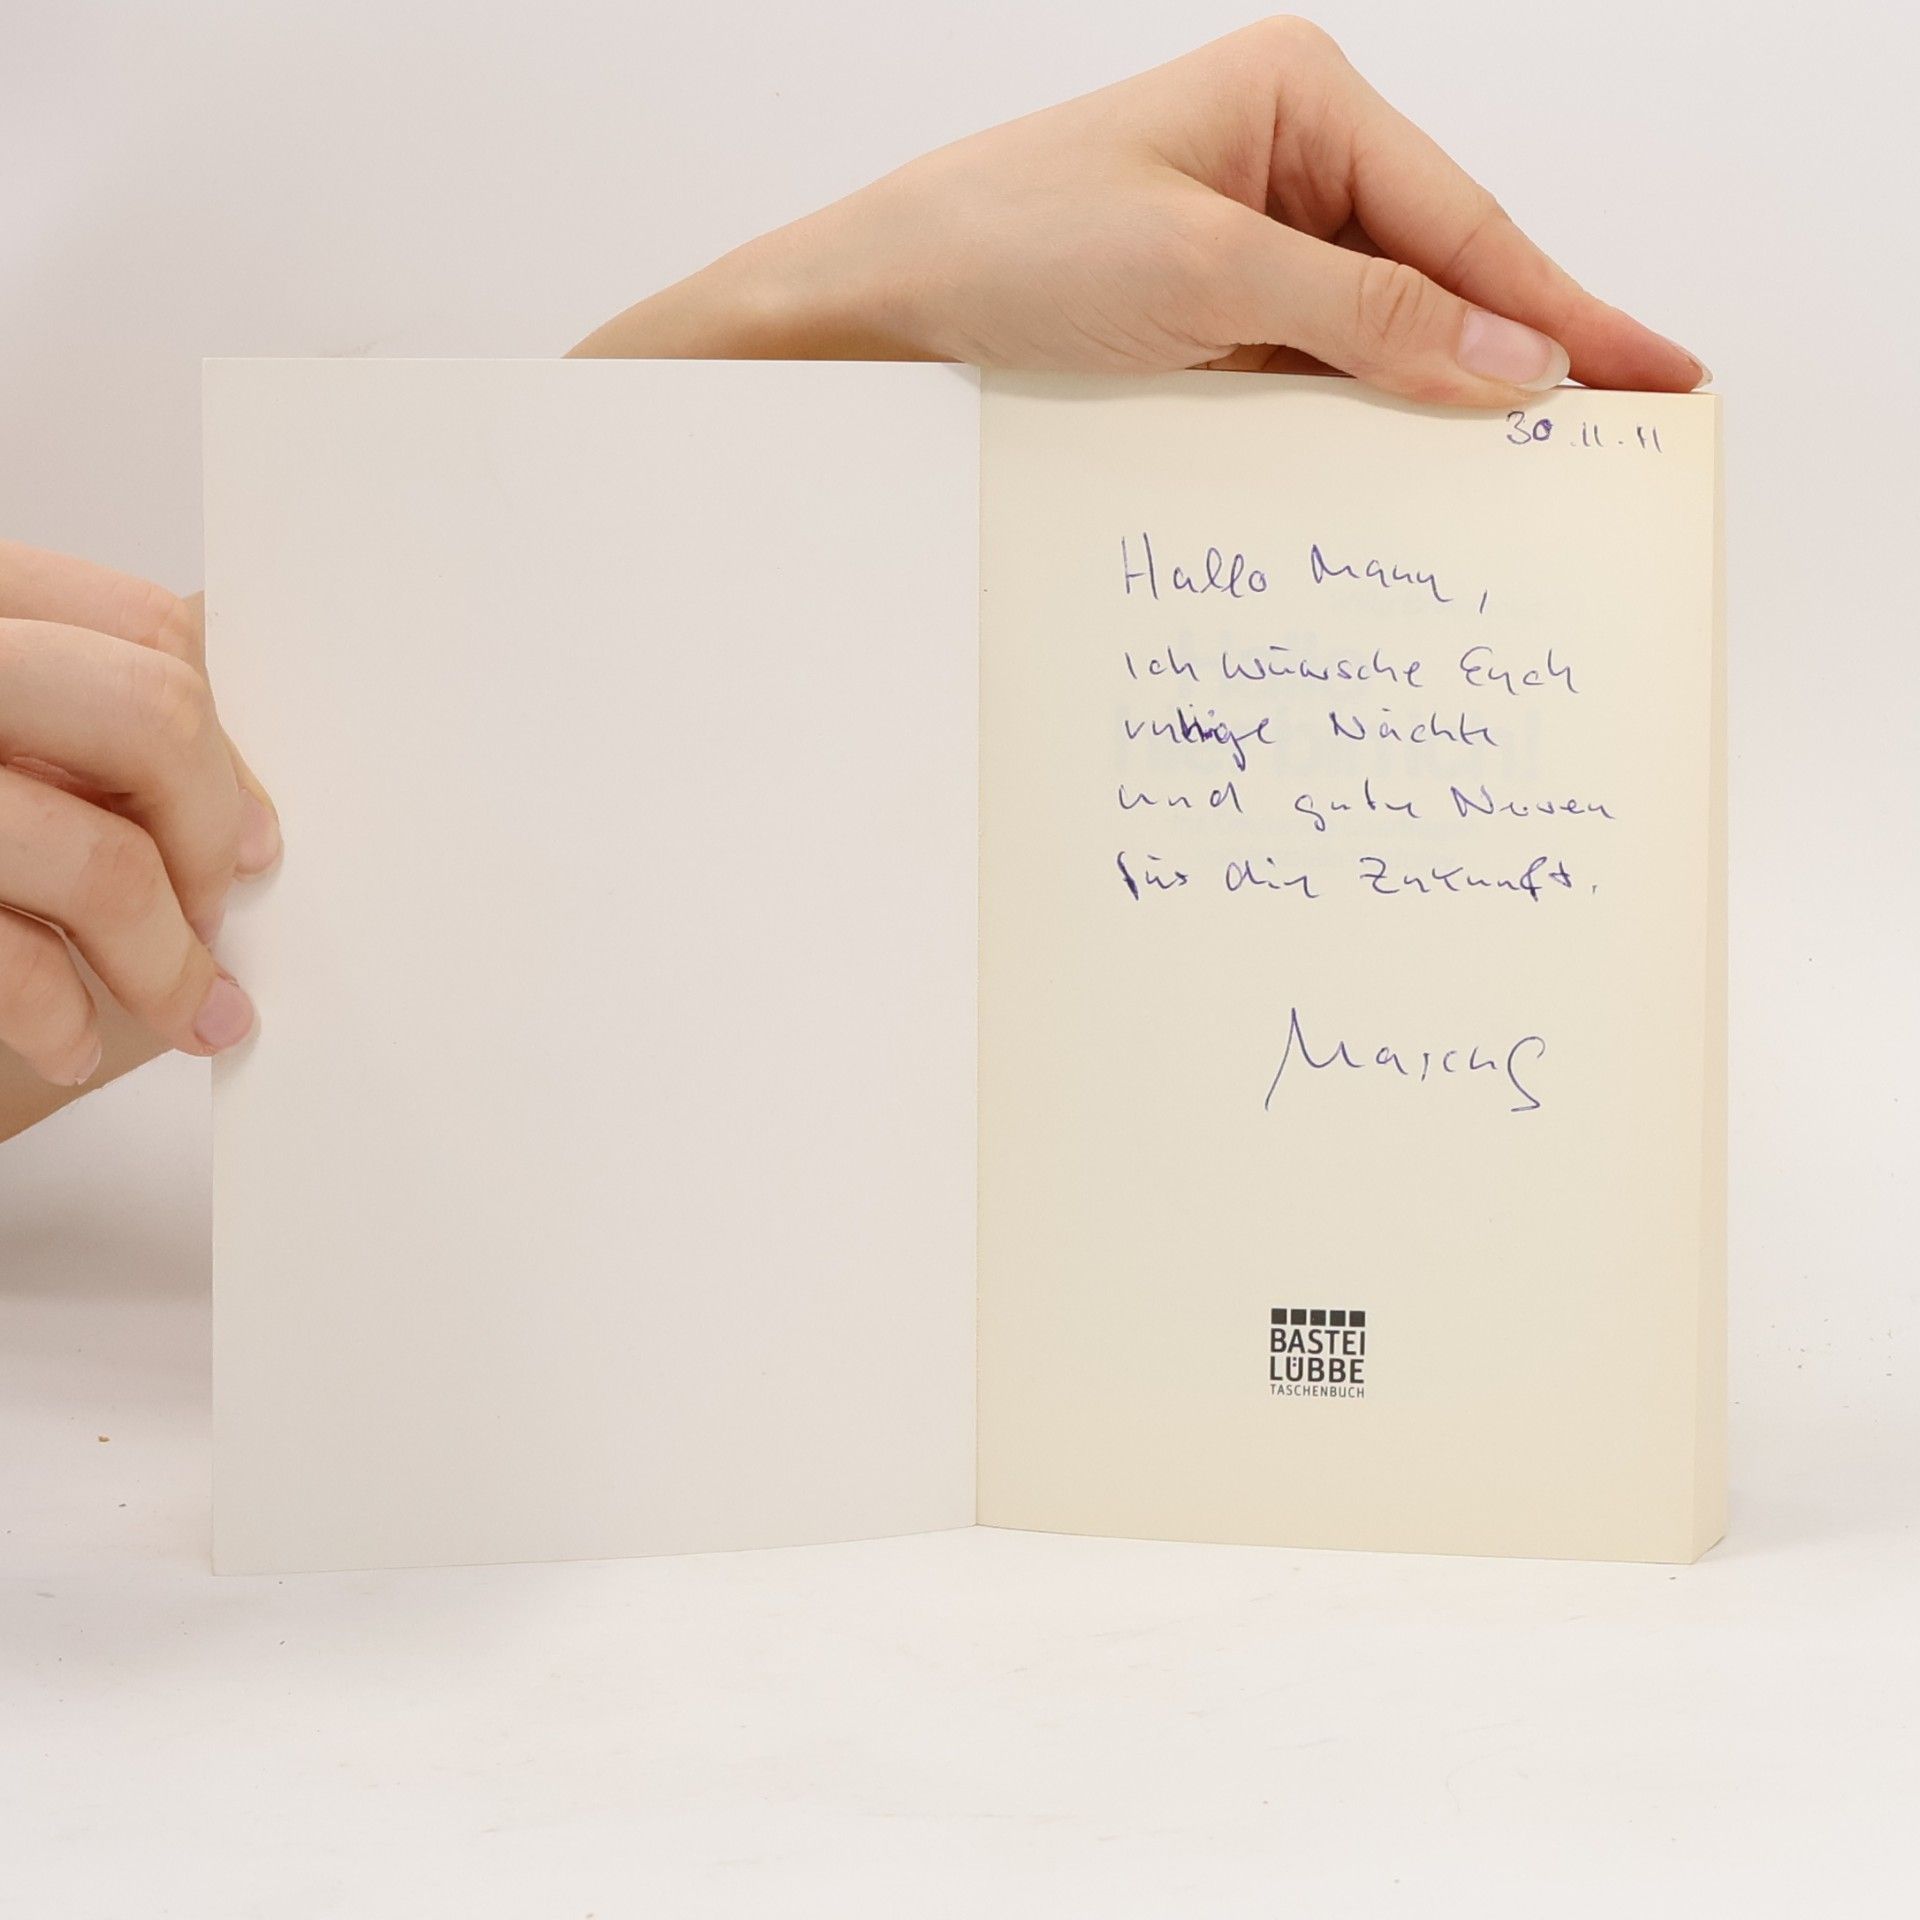 30.11.11
Hallo Mann,
ich wünsche Euch
ruhige Nächte
und gute Nerven
für die Zukunft.
Marcus
BASTEI
LÜBBE
TASCHENBUCH